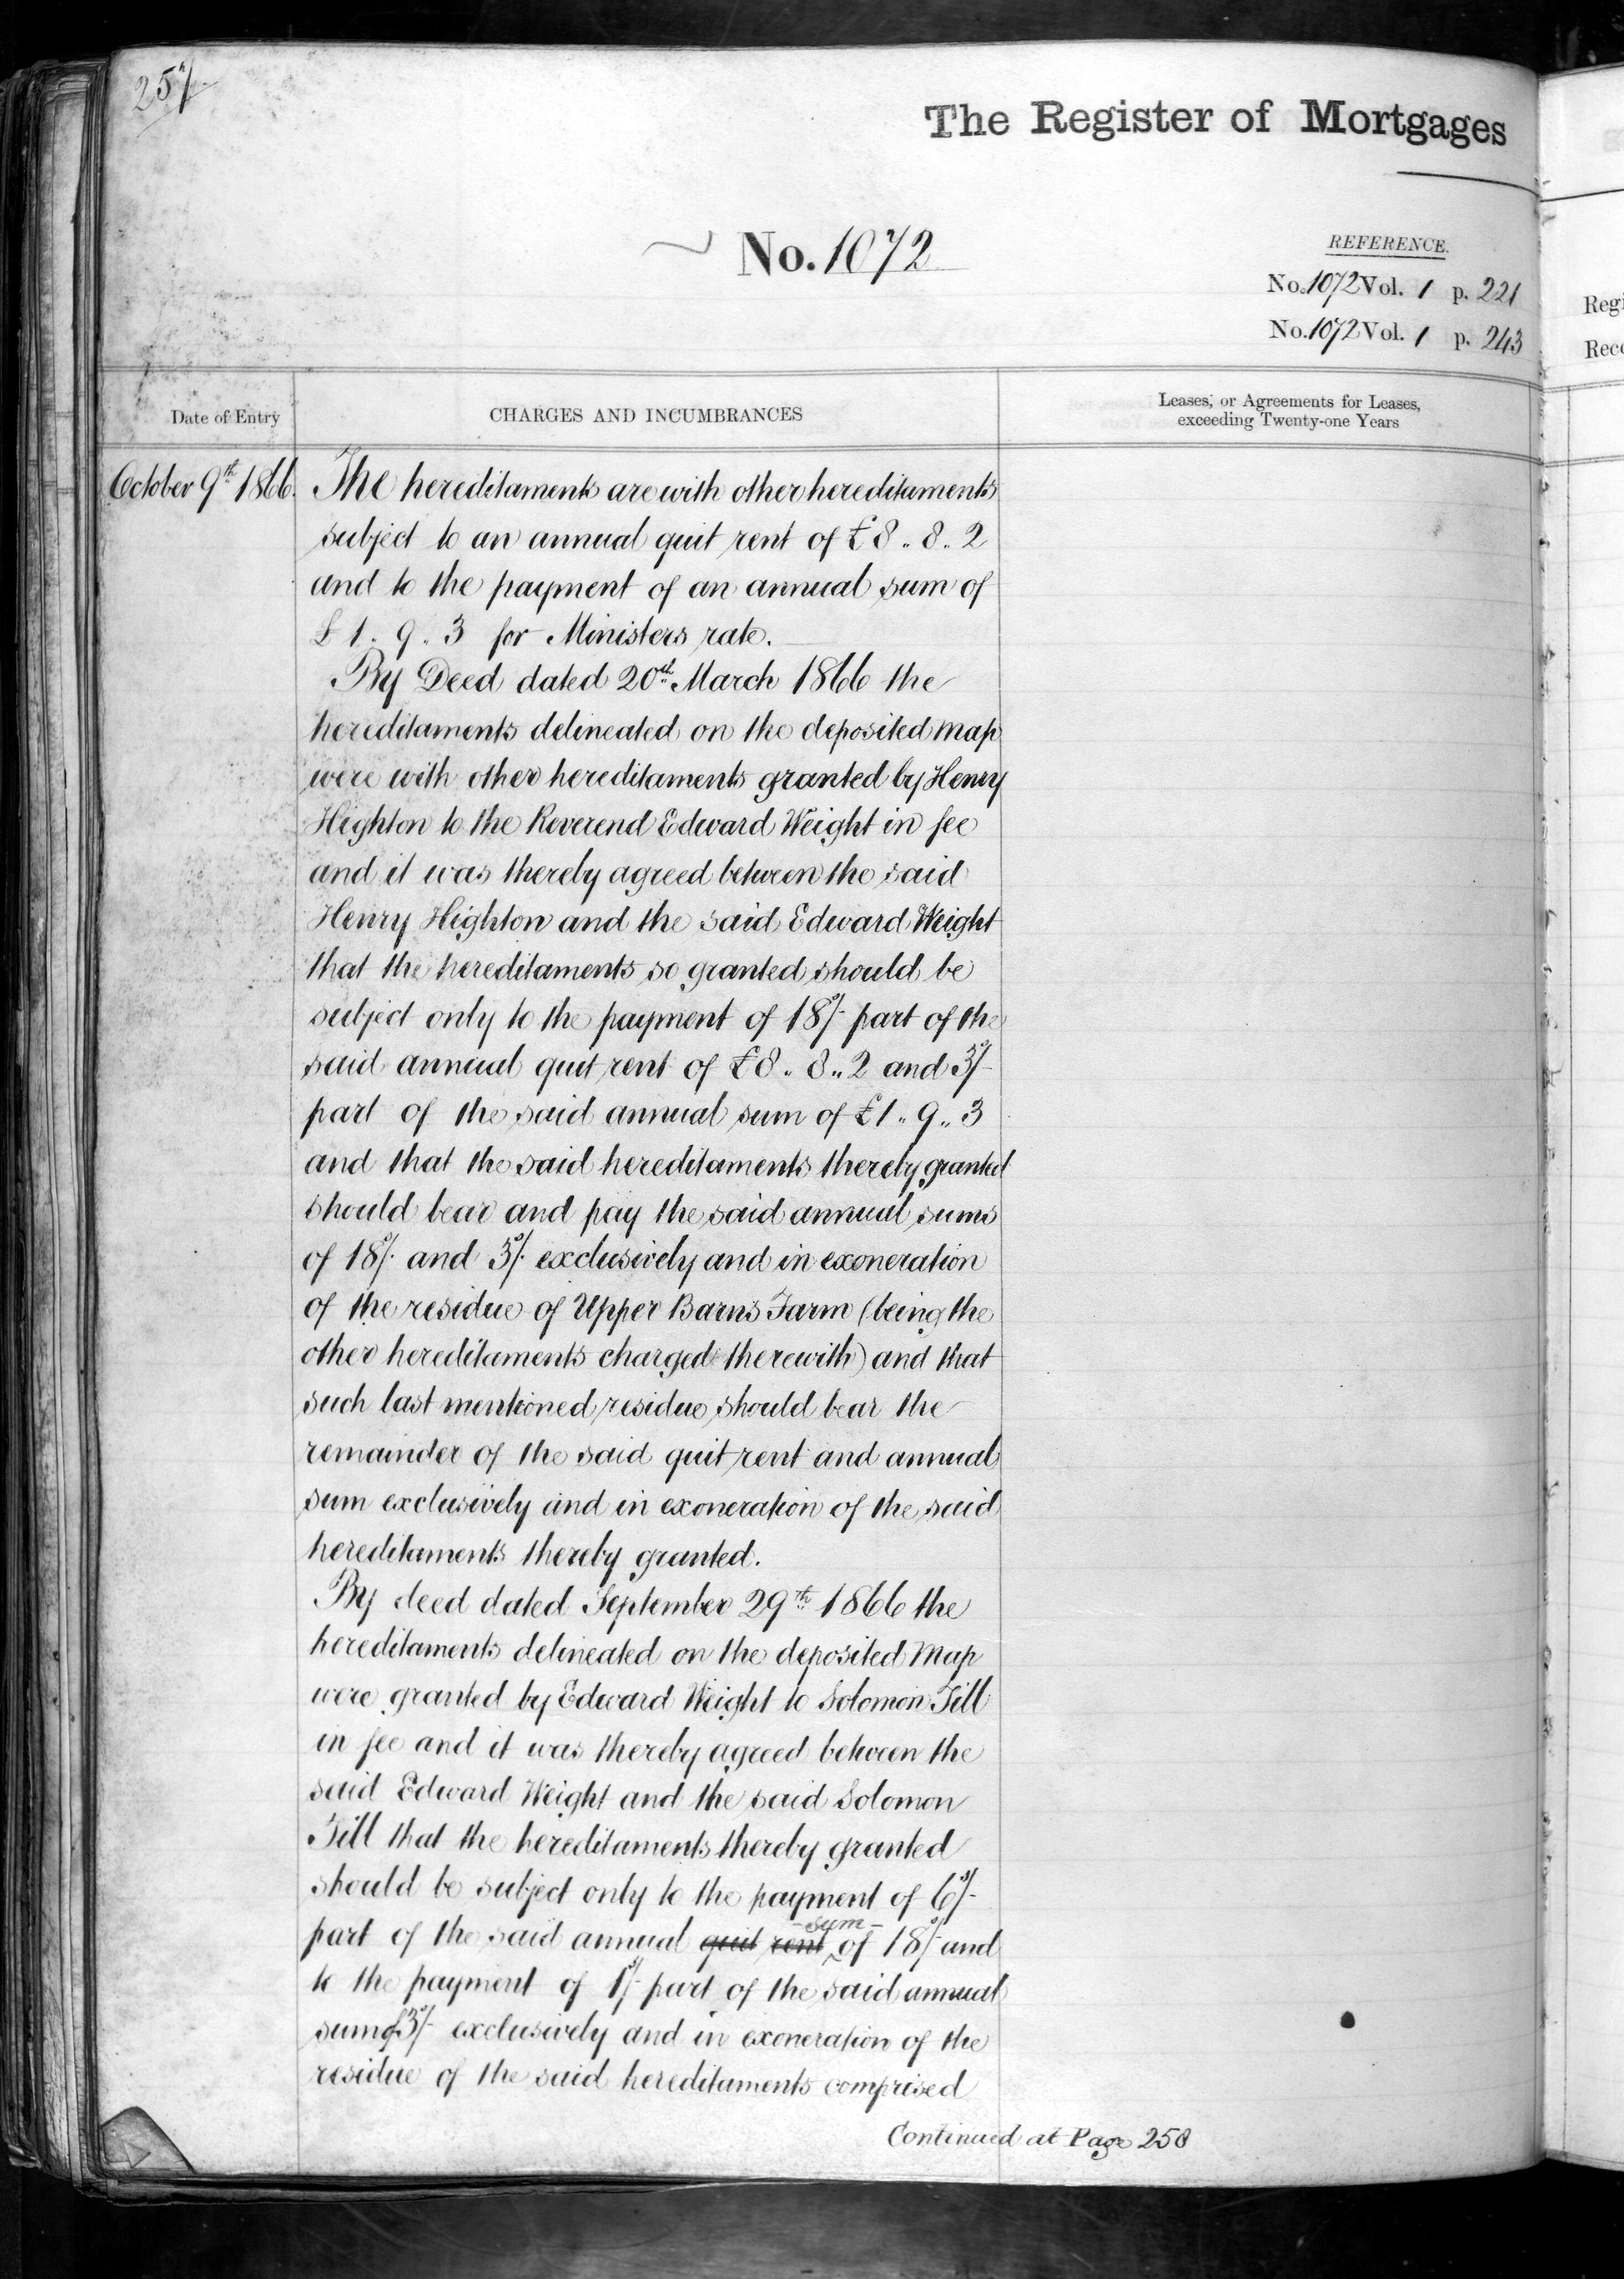 257
The Register of Mortgages
No. 1072
REFERENCE.
No. 1072 Vol. 1 p. 221
No. 1072 Vol. 1 p. 243
Date of Entry
CHARGES AND INCUMBRANCES
Leases, or Agreements for Leases,
exceeding Twenty-one Years
October 9th 1866.
The hereditaments are with other hereditaments
subject to an annual quit rent of £8..8..2
and to the payment of an annual sum of
£1.9.3 for Ministers rate.
By Deed dated 20th March 1866 the
hereditaments delineated on the deposited map
were with other hereditaments granted by Henry
Highton to the Reverend Edward Weight in fee
and it was thereby agreed between the said
Henry Highton and the said Edward Weight
that the hereditaments so granted should be
subject only to the payment of 18s/- part of the
said annual quit rent of £8..8..2 and 3s/-
part of the said annual sum of £1..9..3
and that the said hereditaments thereby granted
should bear and pay the said annual sums
of 18s/. and 3s/. exclusively and in exoneration
of the residue of Upper Barns Farm (being the
other hereditaments charged therewith) and that
such last mentioned residue should bear the
remainder of the said quit rent and annual
sum exclusively and in exoneration of the said
hereditaments thereby granted.
By deed dated September 29th 1866 the
hereditaments delineated on the deposited Map
were granted by Edward Weight to Solomon Till
in fee and it was thereby agreed between the
said Edward Weight and the said Solomon
Till that the hereditaments thereby granted
should be subject only to the payment of 6s/-
part of the said annual quit rent sum of 18s/- and
to the payment of 1s/- part of the said annual
sum of 3s/- exclusively and in exoneration of the
residue of the said hereditaments comprised
Continued at Page 258
Regi
Reco